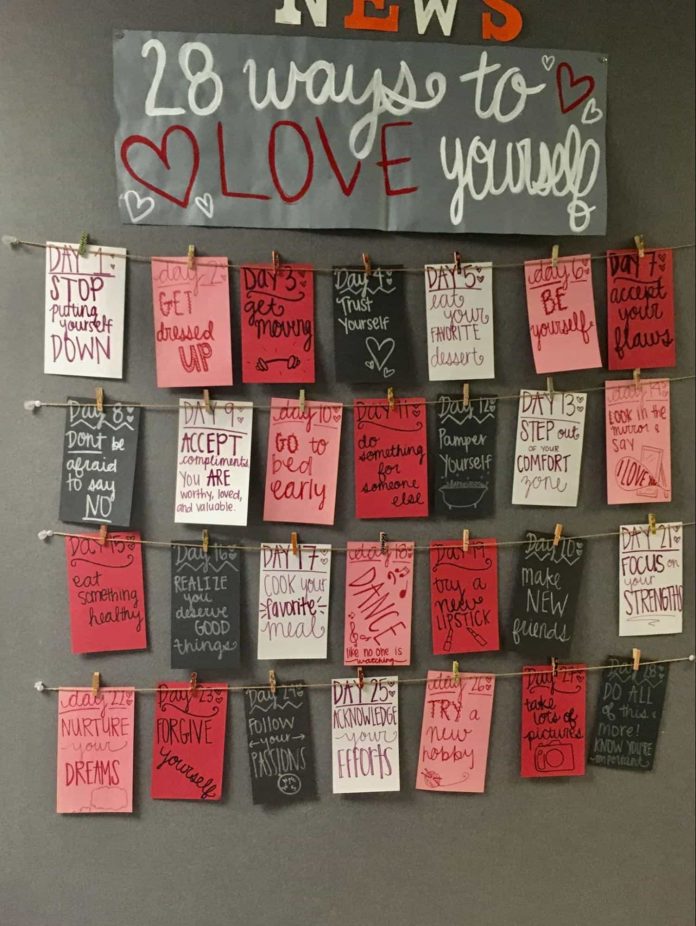 NEWS
28 ways to
LOVE yourself
DAY 1
STOP
putting
yourself
DOWN
day 2
GET
dressed
UP
DAY 3
get
moving
Day 4
Trust
Yourself
DAY 5
eat
your
FAVORITE
dessert
day 6
BE
yourself
DAY 7
accept
your
flaws
Day 8
DON'T be
afraid
to say
NO
DAY 9
ACCEPT
compliments
YOU ARE
worthy, loved,
and valuable.
day 10
GO to
bed
early
DAY 11
do
something
for
someone
else
Day 12
Pamper
Yourself
DAY 13
STEP out
OF YOUR
COMFORT
zone
day 14
LOOK in the
mirror &
say
I LOVE
DAY 15
eat
something
healthy
Day 16
REALIZE
you
deserve
GOOD
things
DAY 17
COOK your
favorite
meal
day 18
DANCE
like no one is
watching
DAY 19
try a
new
LIPSTICK
Day 20
make
NEW
friends
DAY 21
FOCUS on
your
STRENGTHS
day 22
NURTURE
your
DREAMS
DAY 23
FORGIVE
yourself
Day 24
FOLLOW
your
PASSIONS
DAY 25
ACKNOWLEDGE
your
EFFORTS
day 26
TRY a
new
hobby
DAY 27
take
lots of
pictures
Day 28
DO ALL
of this &
more!
KNOW YOU'RE
important